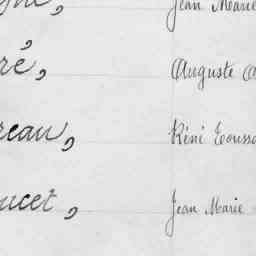 Jean Marie
ré, Auguste
reau, Réni Toussa
ucet, Jean Marie